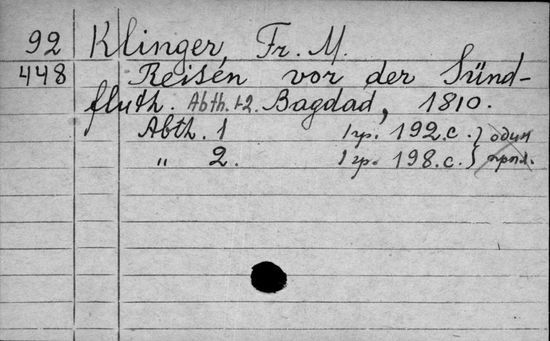 92 Klinger, Fr. M.
448 Reisen vor der Sünd-
fluth. Abth. 1-2. Bagdad, 1810.
Abth. 1 1 гр. 192.с. } один
„ 2. 1 гр. 198.с. }